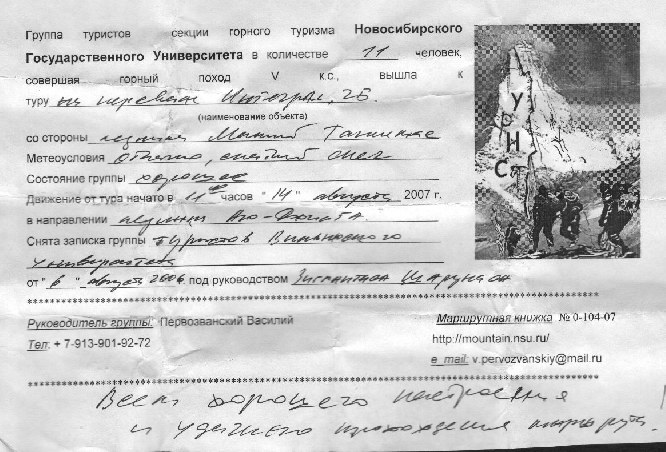 Группа туристов секции горного туризма Новосибирского
Государственного Университета в количестве 11 человек,
совершая горный поход V к.с., вышла к
туру на перевале Интеграл, 2Б.
(наименование объекта)
со стороны ледника Малый
Метеоусловия отлично, слепящий снег
Состояние группы хорошее
Движение от тура начато в 11 часов "14" августа 2007 г.
в направлении ледника
Снята записка группы туристов Вильнюсского
университета
от "6" август 2006 под руководством
****************************************
Руководитель группы: Первозванский Василий
Маршрутная книжка № 0-104-07
Тел: + 7-913-901-92-72
http://mountain.nsu.ru/
e_mail: v.pervozvanskiy@mail.ru
****************************************
Всем хорошего настроения
и удачного прохождения маршрута!